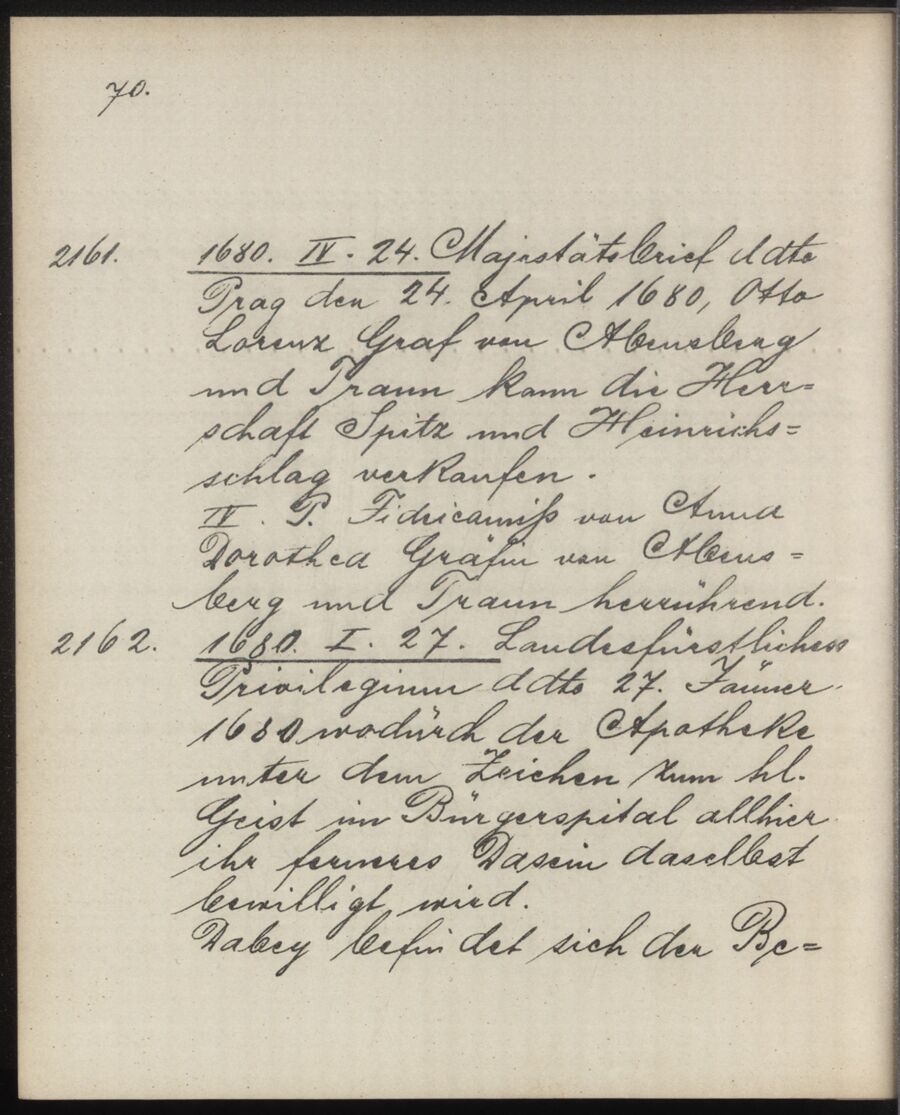 70.
2161. 1680. IV. 24. Majestätsbrief ddto
Prag den 24. April 1680, Otto
Lorenz Graf von Abensberg
und Traun kann die Herr=
schaft Spitz und Heinrichs=
schlag verkaufen.
IV. P. Fideicomiß von Anna
Dorothea Gräfin von Abens=
berg und Traun herrührend.
2162. 1680. I. 27. Landesfürstliches
Privilegium ddto 27. Jänner
1680 wodurch der Apotheke
unter dem Zeichen zum hl.
Geist im Bürgerspital allhier
ihr ferneres Dasein daselbst
bewilligt wird.
Dabey befindet sich der Be=